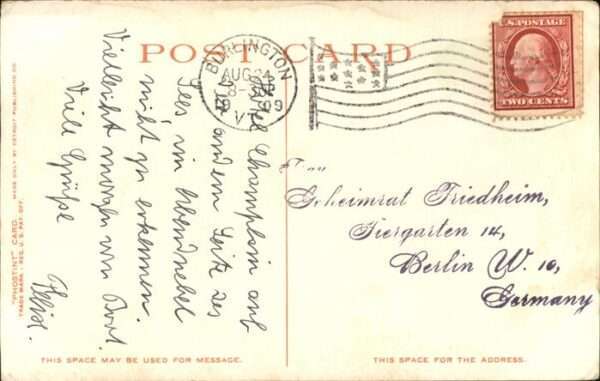 POST CARD
BURLINGTON
AUG 24
VT.
U.S. POSTAGE
TWO CENTS
Hotel Champlain auf
andern Seite des
Sees im Abendnebel
nicht zu erkennen.
Vielleicht morgen von Dort.
Viele Grüße
Frau
Geheimrat Friedheim,
Tiergarten 14,
Berlin W. 10,
Germany
"PHOSTINT" CARD. MADE ONLY BY DETROIT PUBLISHING CO.
TRADE MARK - REG. U.S. PAT. OFF.
THIS SPACE MAY BE USED FOR MESSAGE.
THIS SPACE FOR THE ADDRESS.